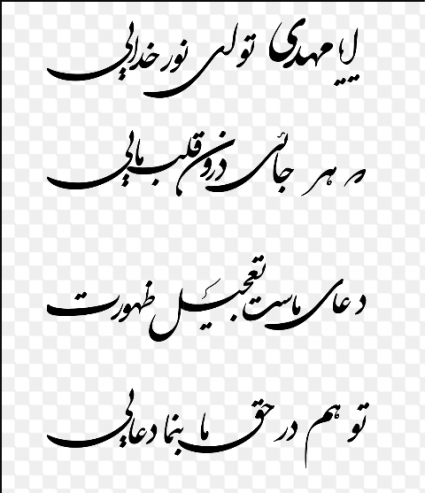 ایا مهدی تو ای نور خدایی
به هر جائی درون قلب مایی
دعای ماست تعجیل ظهورت
تو هم در حق ما بنما دعایی